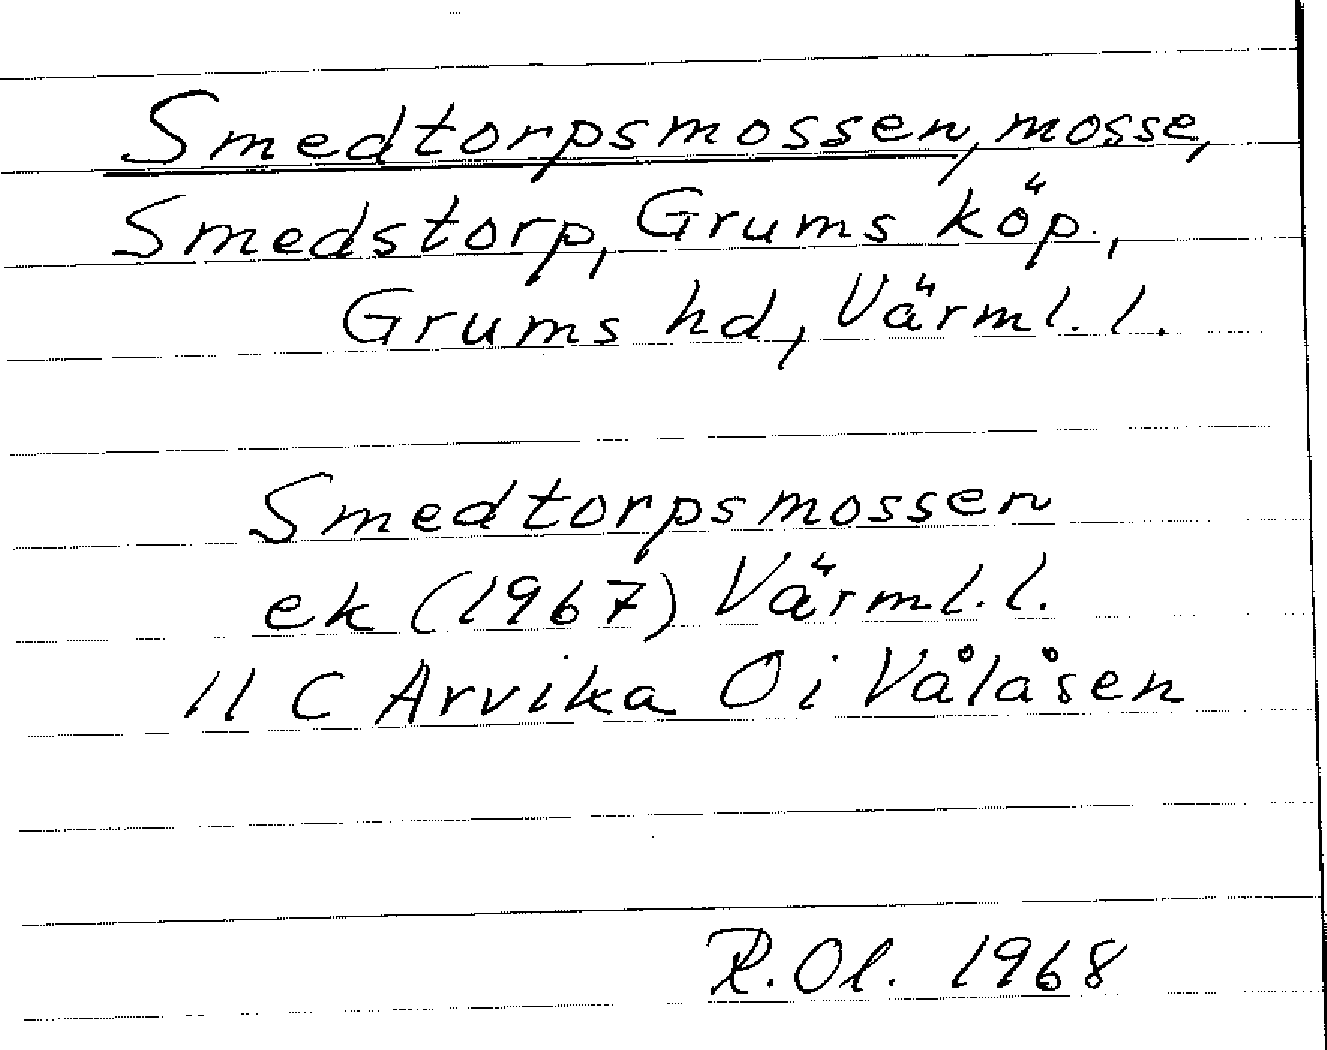 Smedtorpsmossen, mosse,
Smedstorp, Grums köp.,
Grums hd, Värml. l.
Smedtorpsmossen
ek (1967) Värml. l.
11 C Arvika 0 i Vålåsen
R. Ol. 1968